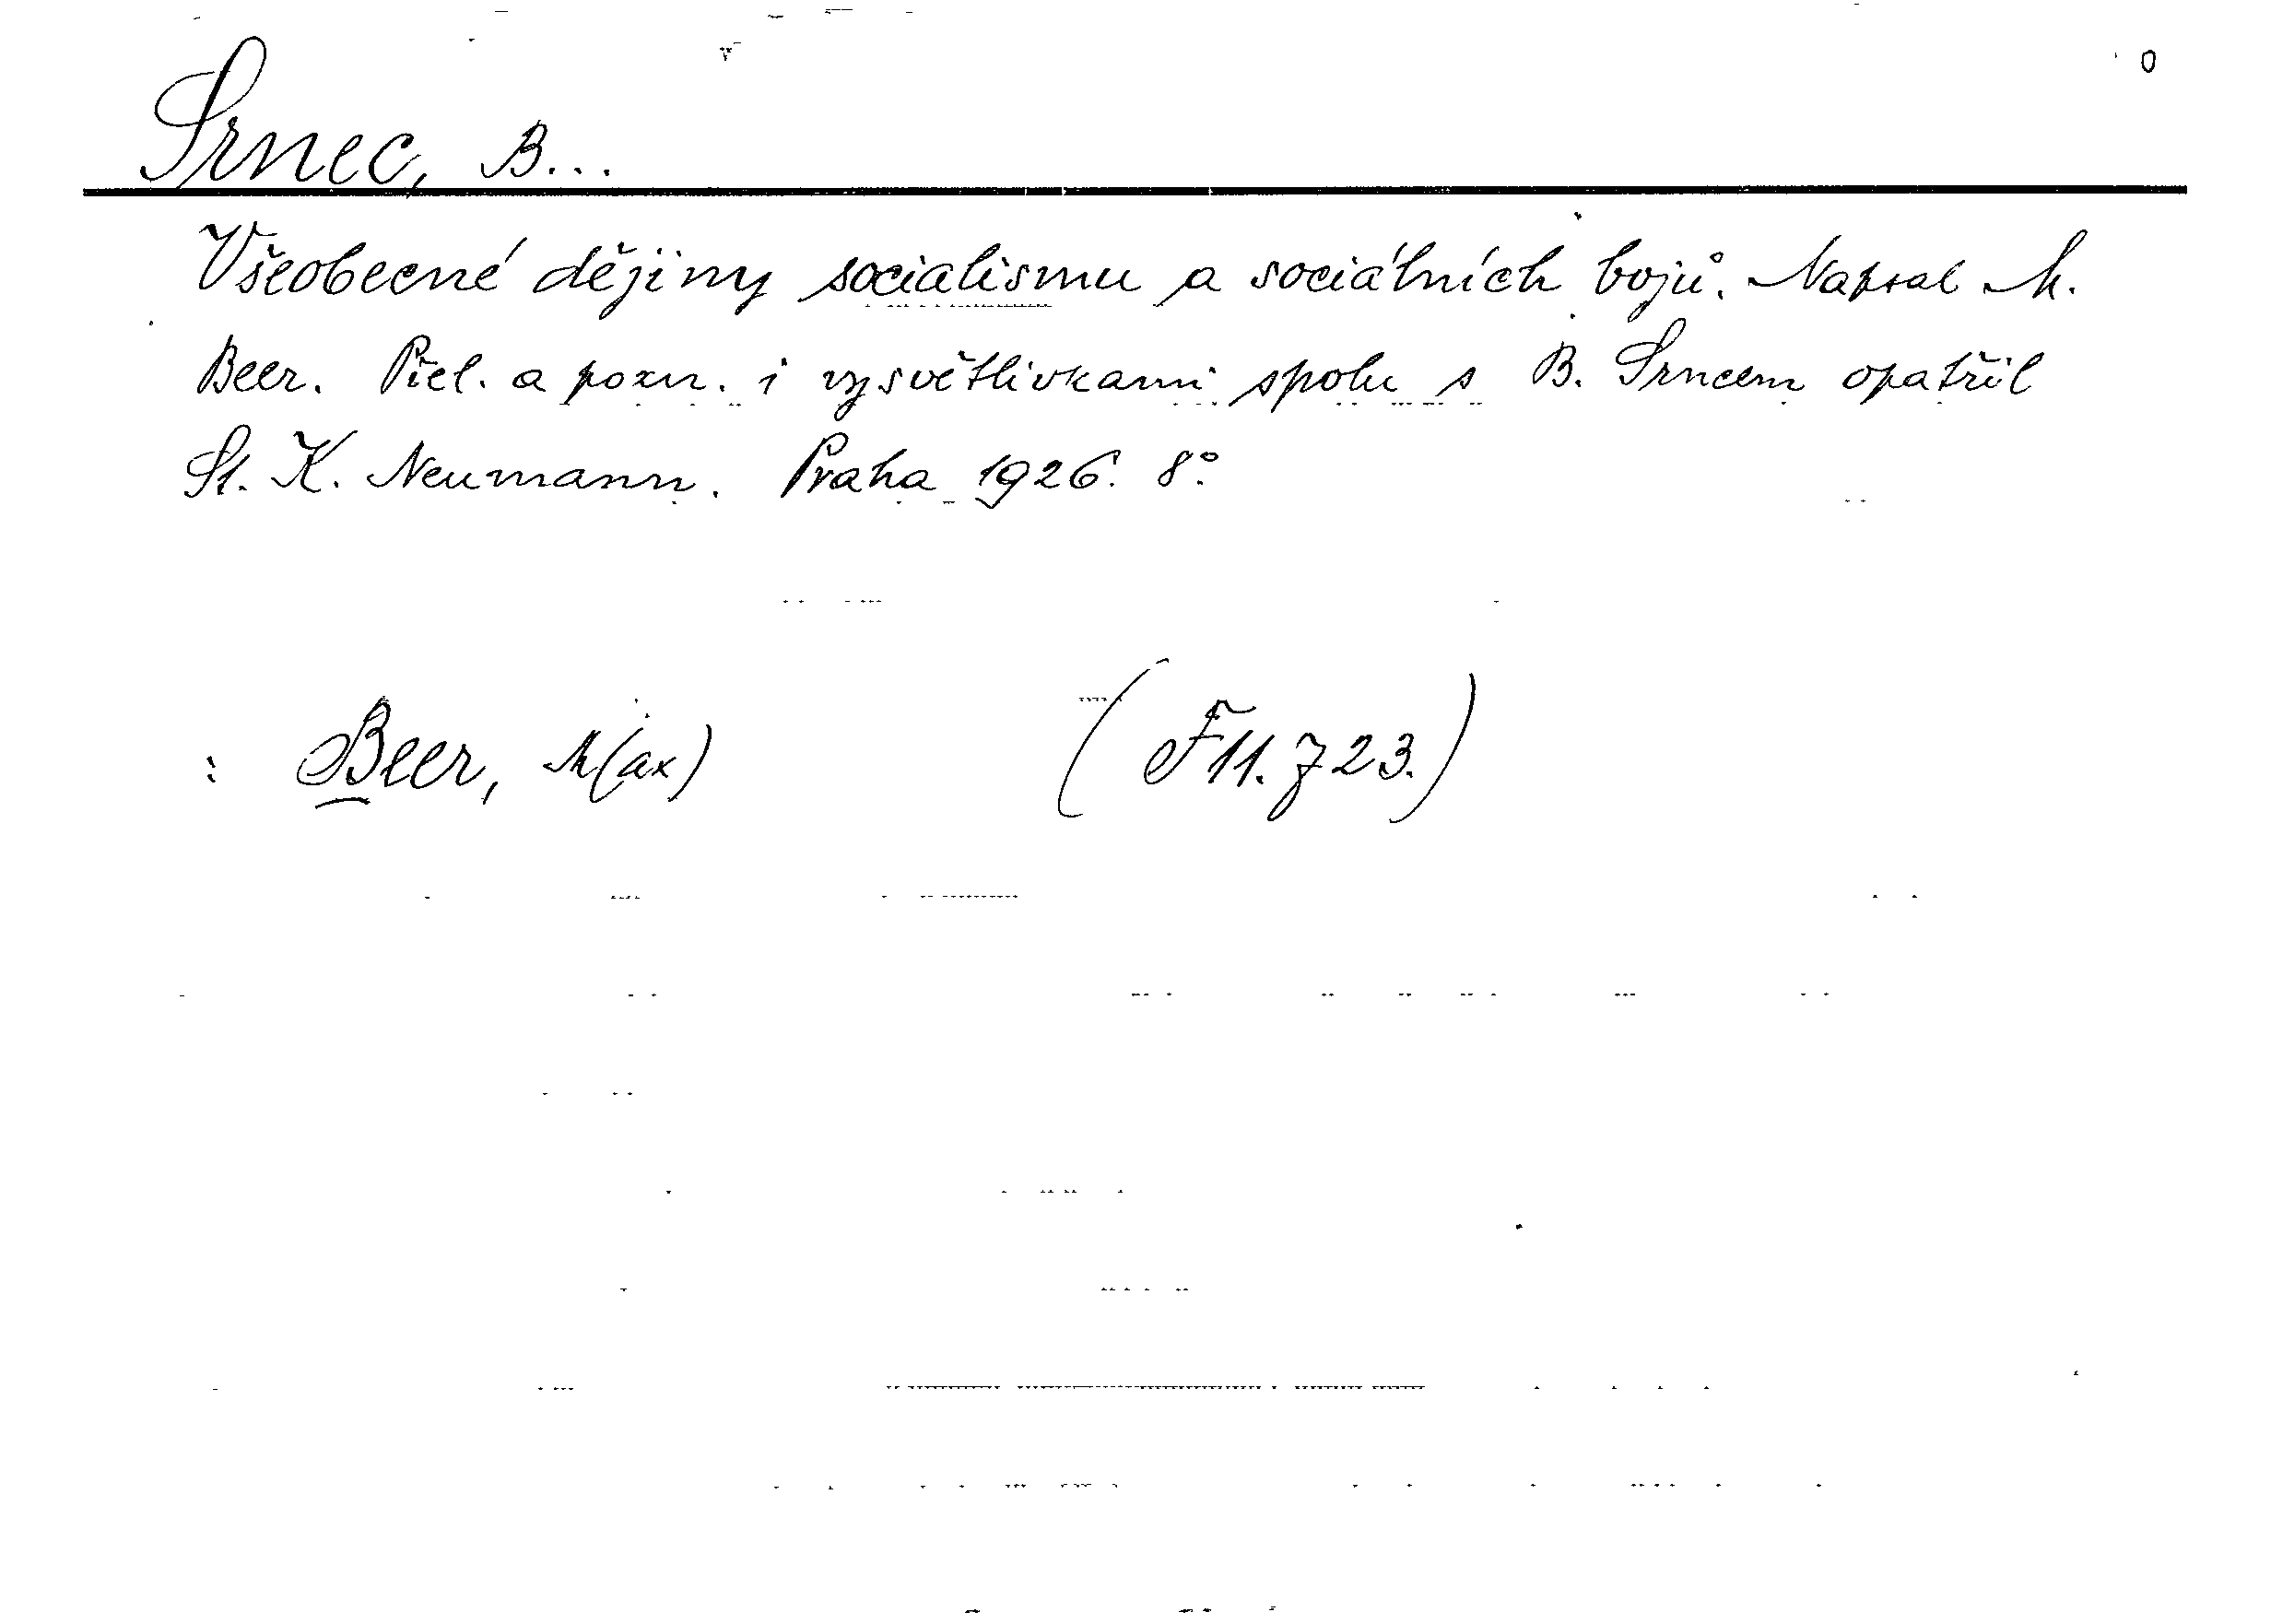 0
Srnec, B...
Všeobecné dějiny socialismu a sociálních bojů. Napsal M.
Beer. Přel. a pozn. i vysvětlivkami spolu s B. Srncem opatřil
St. K. Neumann. Praha 1926. 8°
: Beer, M(ax) (F11.723.)